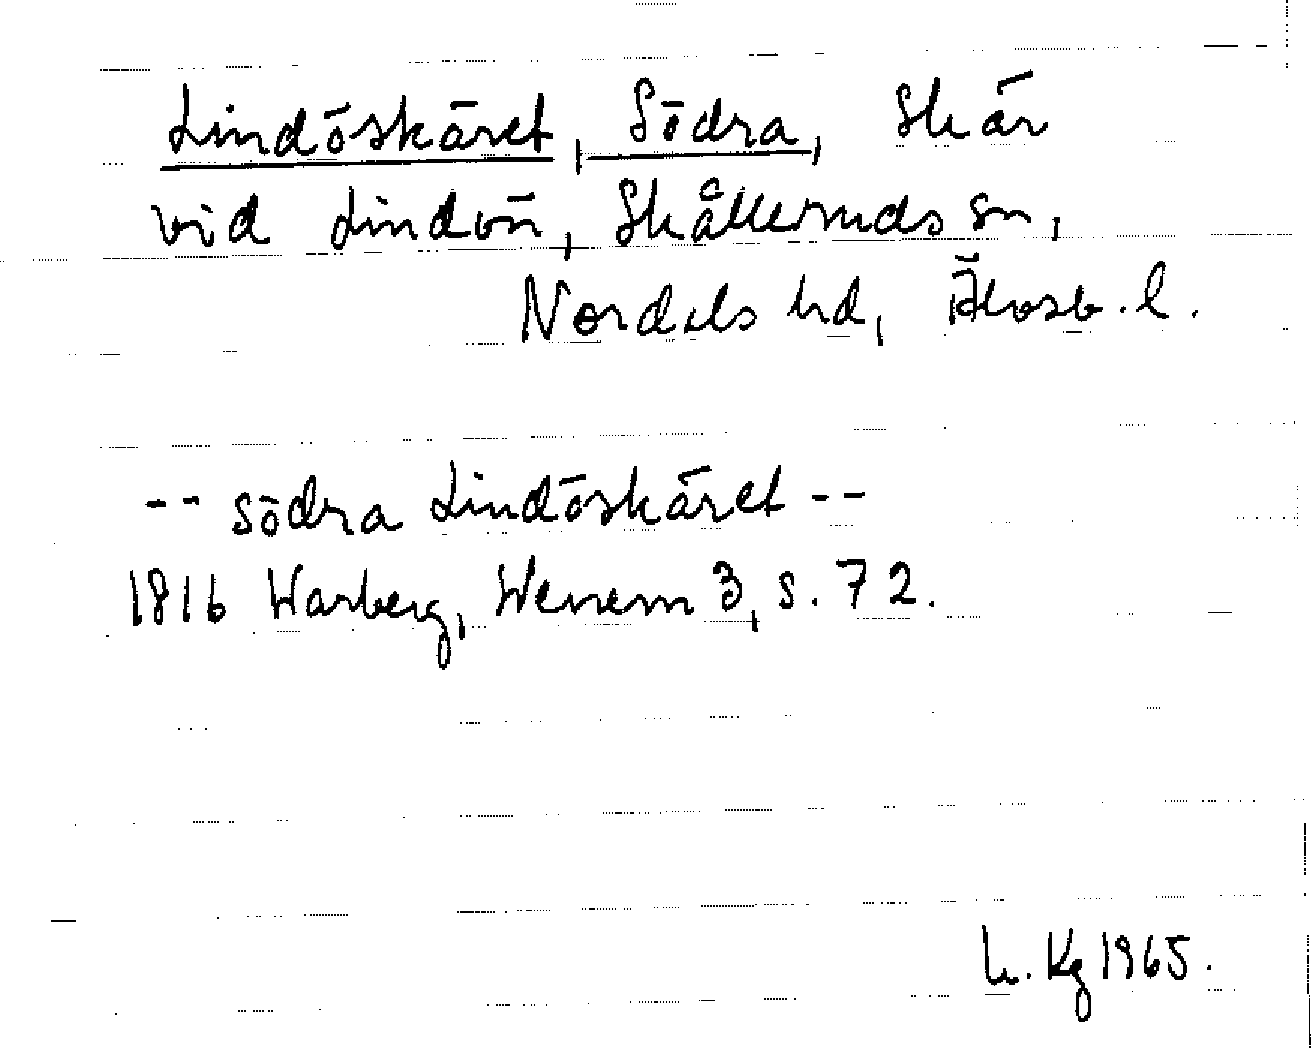 Lindöskäret, Södra, Skär
vid Lindön, Skålleruds sn,
Nordals hd, Älvsb. l.
-- södra Lindöskäret --
1816 Warberg, Wenern 3, s. 72.
Kg 1965.